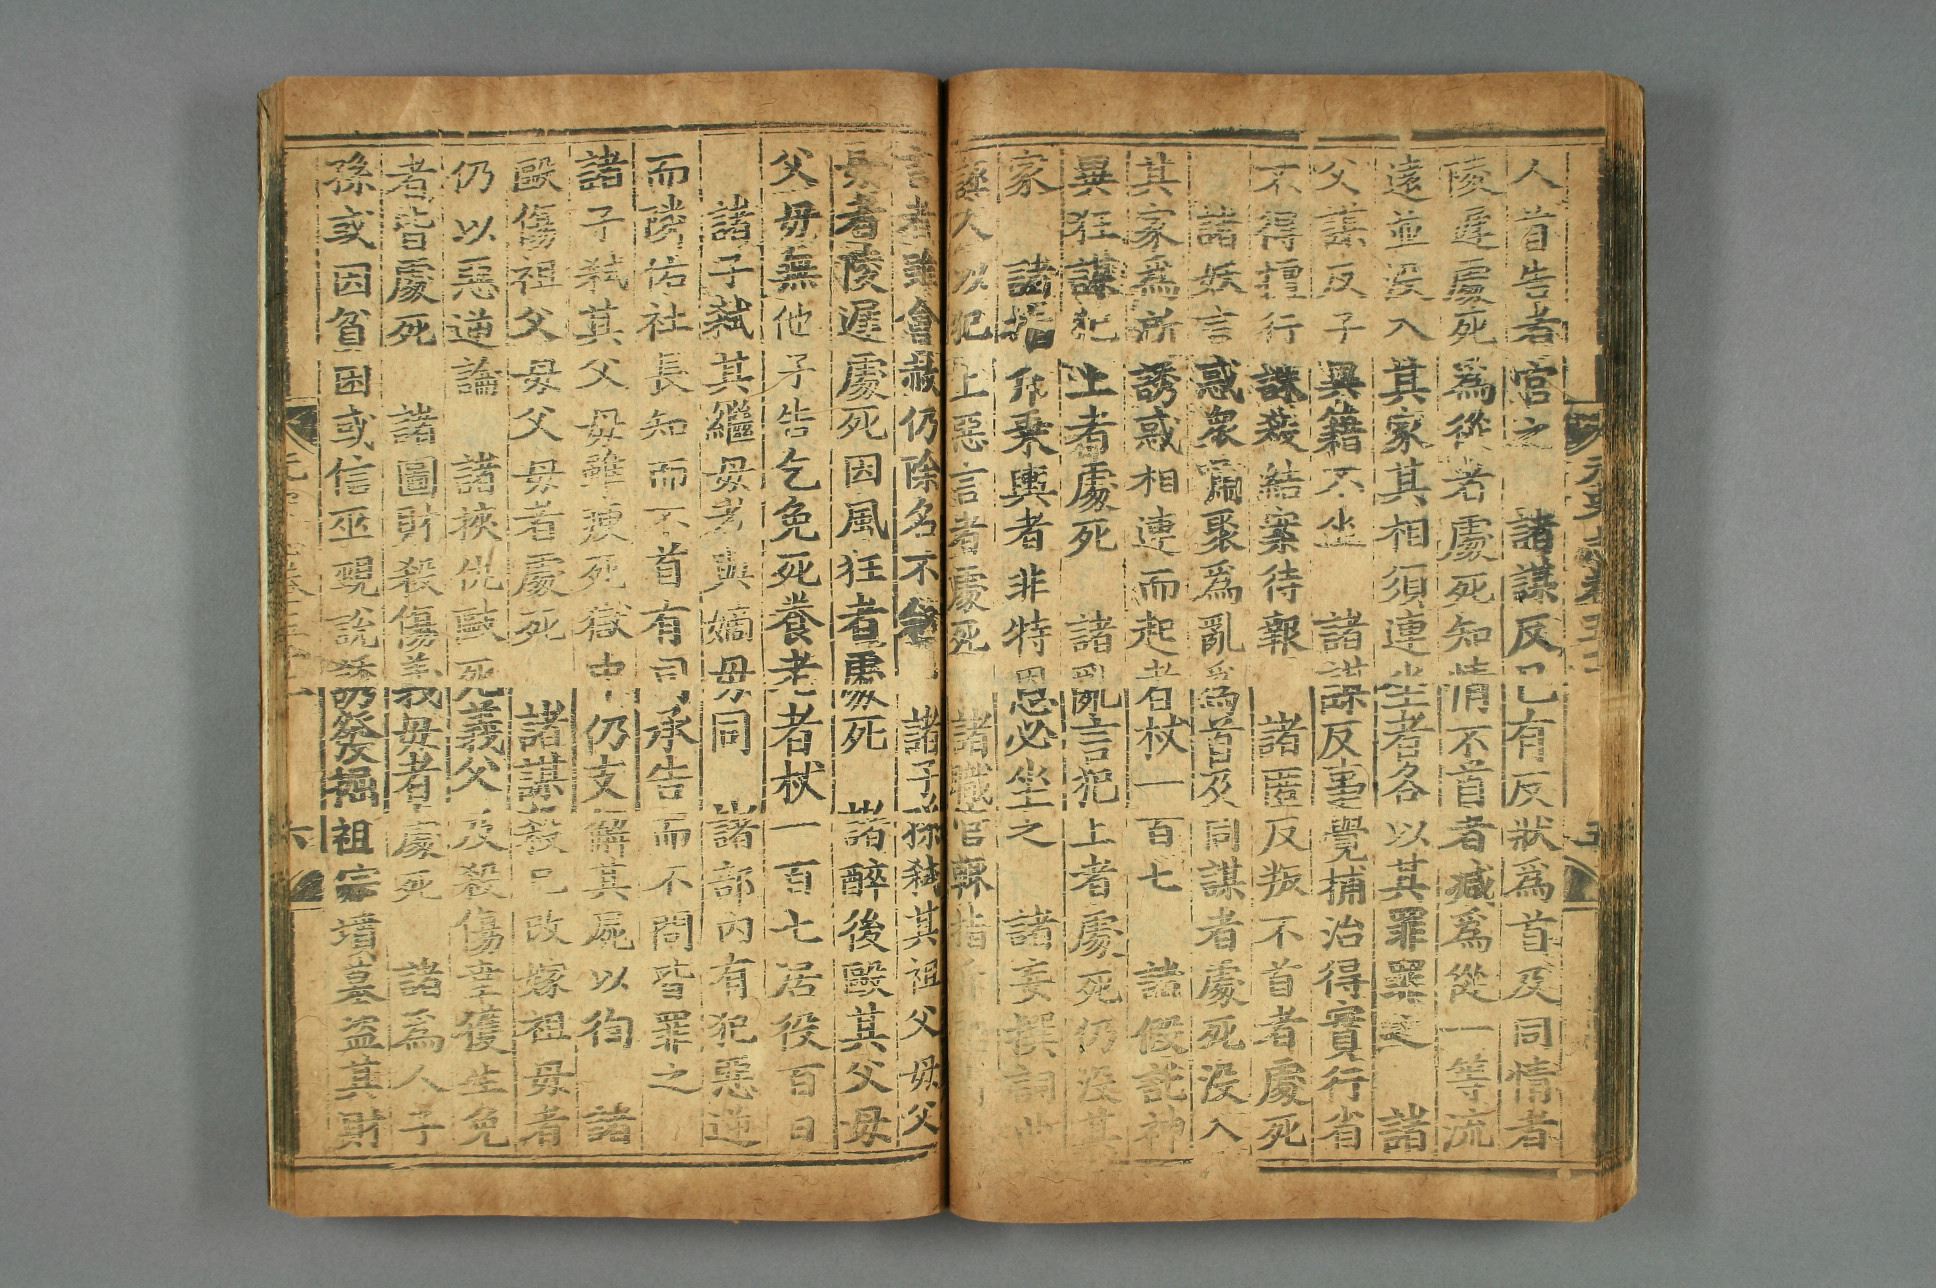 元史志卷五十二
五
人首告者官之　諸謀反已有反狀爲首及同情者
陵遲處死爲從者處死知情不首者減爲從一等流
遠並沒入其家其相須連坐者各以其罪罪之　諸
父謀反子異籍不坐　諸謀反事覺捕治得實行省
不得擅行誅殺結案待報　諸匿反叛不首者處死
諸妖言惑衆嘯聚爲亂爲首及同謀者處死沒入
其家爲所誘惑相連而起者杖一百七　諸假託神
異狂謀犯上者處死　諸亂言犯上者處死仍沒其
家　諸指斥乗輿者非特恩必坐之　諸妄撰詞曲
誣人以犯上惡言者處死　諸職官輙指斥
言者雖會赦仍除名不敘　諸子孫弑其祖父母父
母者陵遲處死因風狂者處死　諸醉後毆其父母
父母無他子告乞免死養老者杖一百七居役百日
諸子弑其繼母者與嫡母同　諸部內有犯惡逆
而隣佑社長知而不首有司承告而不問皆罪之
諸子弑其父母雖瘐死獄中仍支解其屍以徇　諸
毆傷祖父母父母者處死　諸謀殺已改嫁祖母者
仍以惡逆論　諸挾仇毆死義父及殺傷幸獲生免
者皆處死　諸圖財殺傷義母者處死　諸爲人子
孫或因貧困或信巫覡說誘發掘祖宗墳墓盜其財
六